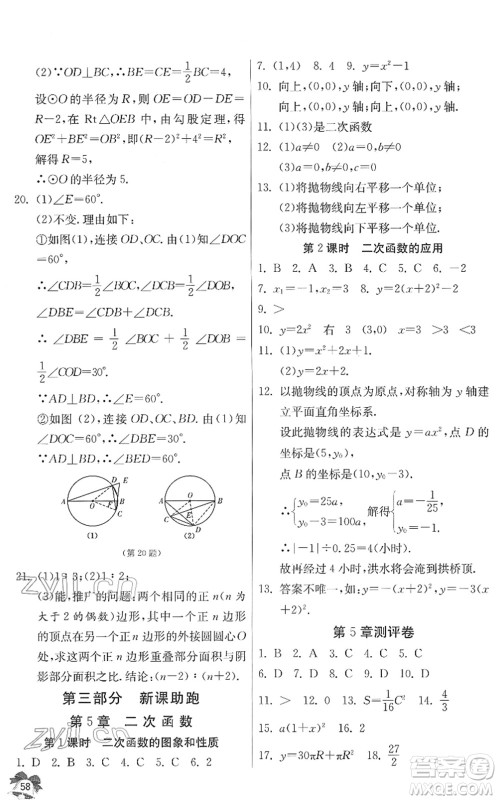 (2)∵OD⊥BC,∴BE=CE=1/2BC=4,
设⊙O的半径为R,则OE=OD-DE=
R-2,在Rt△OEB中,由勾股定理得,
OE²+BE²=OB²,即(R-2)²+4²=R²,
解得R=5.
∴⊙O的半径为5.
20. (1)∠E=60°.
(2)不变. 理由如下:
①如图(1),连接OD、OC. 由(1)知∠DOC
=60°,
∴∠DBC=1/2∠COD,∠DCB=1/2∠DOB,
∠DBE=∠DBC+∠CBE,
∴∠DBE=1/2∠BOC+1/2∠DOB=
1/2∠COD=30°.
∵AD⊥BD,∴∠E=60°.
②如图(2),连接OD、OC、OB. 由(1)知
∠DOC=60°,
∴∠DBE=1/2∠COD=30°.
∵AD⊥BD,∴∠BED=60°.
(1) (2)
(第20题)
21. (1)1∶3;(2)1∶2;
(3)能,推广的问题:两个相同的正n(n为
大于2的偶数)边形,其中一个正n边形
的顶点在另一个正n边形外接圆圆心O
处,求重叠部分面积与阴影部分面积之比.
阴影部分面积之比:(n-2)∶(n+2).
第三部分 新课助跑
第5章 二次函数
第1课时 二次函数的图象和性质
1. D 2. A 3. C 4. C 5. C 6. 2
58
7. (1,4) 8. 4 9. y=x²-1
10. 向上,(0,0),y轴;向下,(0,0),y轴;
向上,(0,0),y轴;向下,(0,0),y轴
11. (1)(3)是二次函数
12. (1)a≠0 (2)a=0,b≠0
(3)a=0,b≠0,c=0
13. (1)将抛物线向右平移一个单位;
(2)将抛物线向左平移一个单位;
(3)将抛物线向上平移一个单位.
第2课时 二次函数的应用
1. B 2. A 3. B 4. C 5. C 6. -2
7. x₁=-1,x₂=3 8. k=2 9. <3
10. y=2x² 右 3 (3,0) >3 <3
11. (1)y=x²+2x+1.
(2)y=x²+2.
12. 以抛物线的顶点为原点,对称轴为y轴建
立平面直角坐标系.
设此抛物线的表达式是y=ax²,点D的
坐标为(5,y₀),
点B的坐标是(10,y₀-3).
∴{y₀=25a, y₀-3=100a, 解得{a=-1/25, y₀=-1.
∴|-1|÷0.25=4(小时).
故再经过4小时,洪水位到桥拱顶.
13. 答案不唯一,如:y=x²,y=x²+x,y=x²
-2x+2
第5章测评卷
1. D 2. B 3. C 4. D 5. B 6. C
7. D 8. C 9. B 10. C
11. > 12. 10 13. S=1/16C² 14. 2
15. a(1+x)² 16. 2
17. y=30πR+πR² 18. 27/2